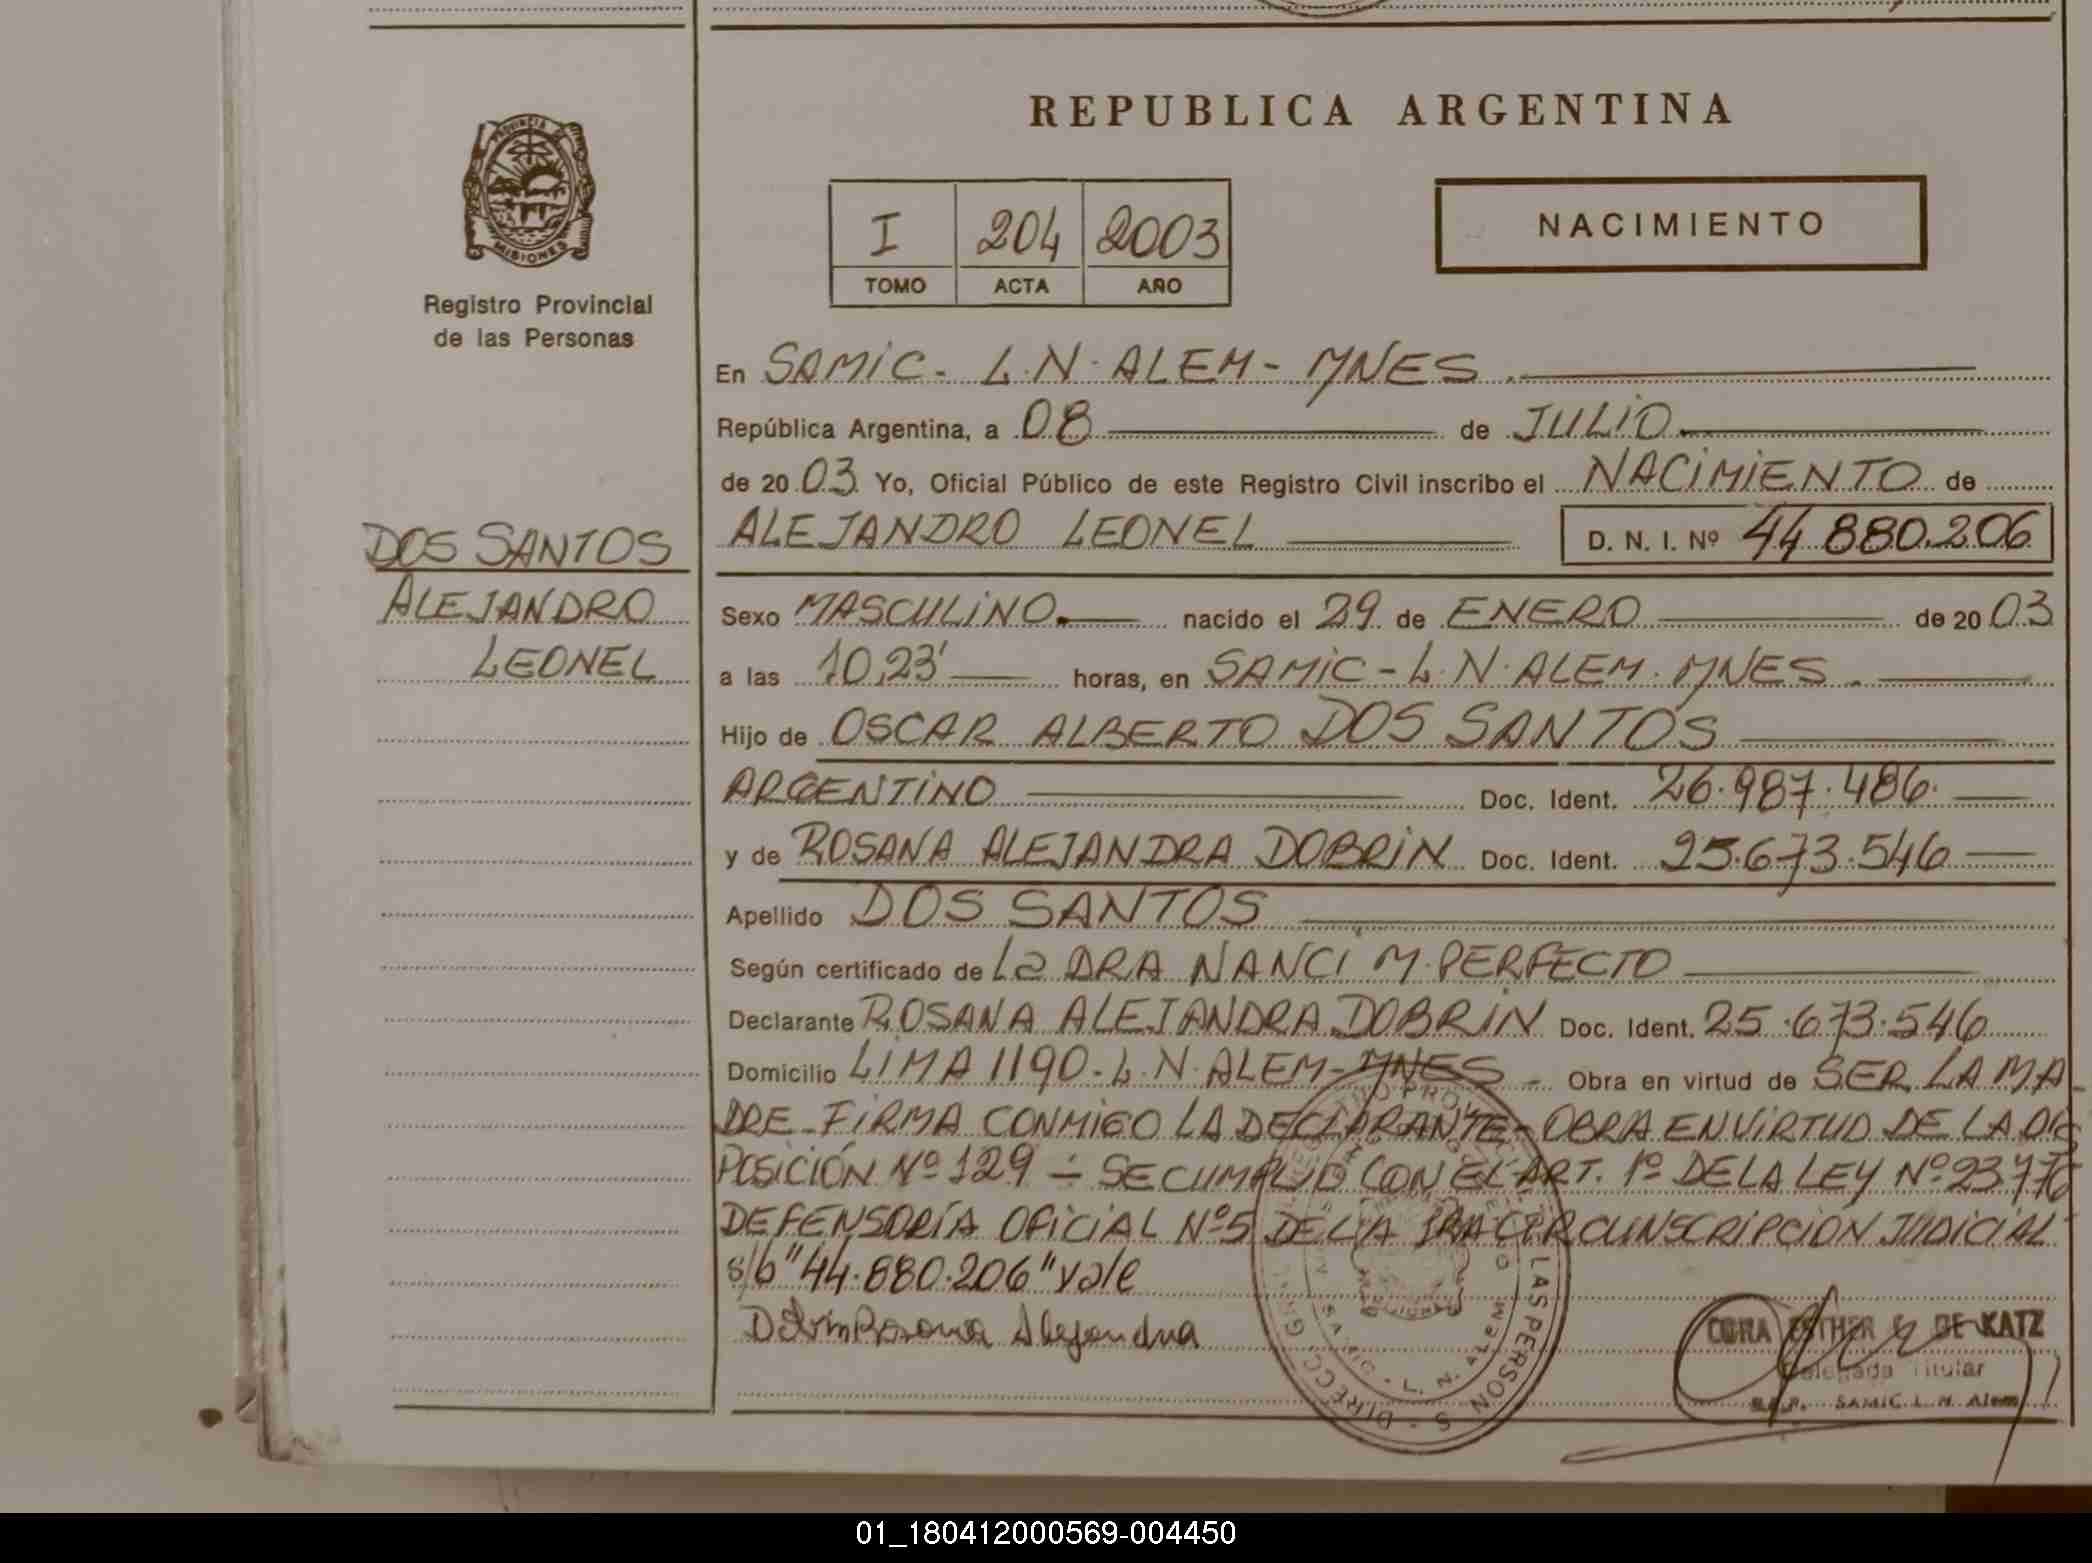 REPUBLICA ARGENTINA
PROVINCIA DE
MISIONES
Registro Provincial
de las Personas
I 204 2003
TOMO ACTA AÑO
NACIMIENTO
En SAMIC - L.N. ALEM - MNES.
República Argentina, a 08 de JULIO
de 2003 Yo, Oficial Público de este Registro Civil inscribo el NACIMIENTO de
DOS SANTOS
ALEJANDRO
LEONEL
ALEJANDRO LEONEL D. N. I. Nº 44.880.206
Sexo MASCULINO. nacido el 29 de ENERO de 2003
a las 10,23' horas, en SAMIC - L.N. ALEM. MNES.
Hijo de OSCAR ALBERTO DOS SANTOS
ARGENTINO Doc. Ident. 26.987.486.
y de ROSANA ALEJANDRA DOBRIN Doc. Ident. 25.673.546
Apellido DOS SANTOS
Según certificado de La DRA NANCI M. PERFECTO
Declarante ROSANA ALEJANDRA DOBRIN Doc. Ident. 25.673.546
Domicilio LIMA 1190 - L.N. ALEM - MNES - Obra en virtud de SER LA MA-
DRE - FIRMA CONMIGO LA DECLARANTE - OBRA EN VIRTUD DE LA DIS
POSICIÓN Nº 129 ÷ SE CUMPLIO CON EL ART. 1º DE LA LEY Nº 23776
DEFENSORÍA OFICIAL Nº 5 DE LA 1RA CIRCUNSCRIPCION JUDICIAL
s/b "44.880.206" vale
Rosana Alejandra
SAMIC - L. N. ALEM
LAS PERSONAS - DIRECC GN
ESTHER DE KATZ
Delegada Titular
SAMIC L. N. Alem
01_180412000569-004450